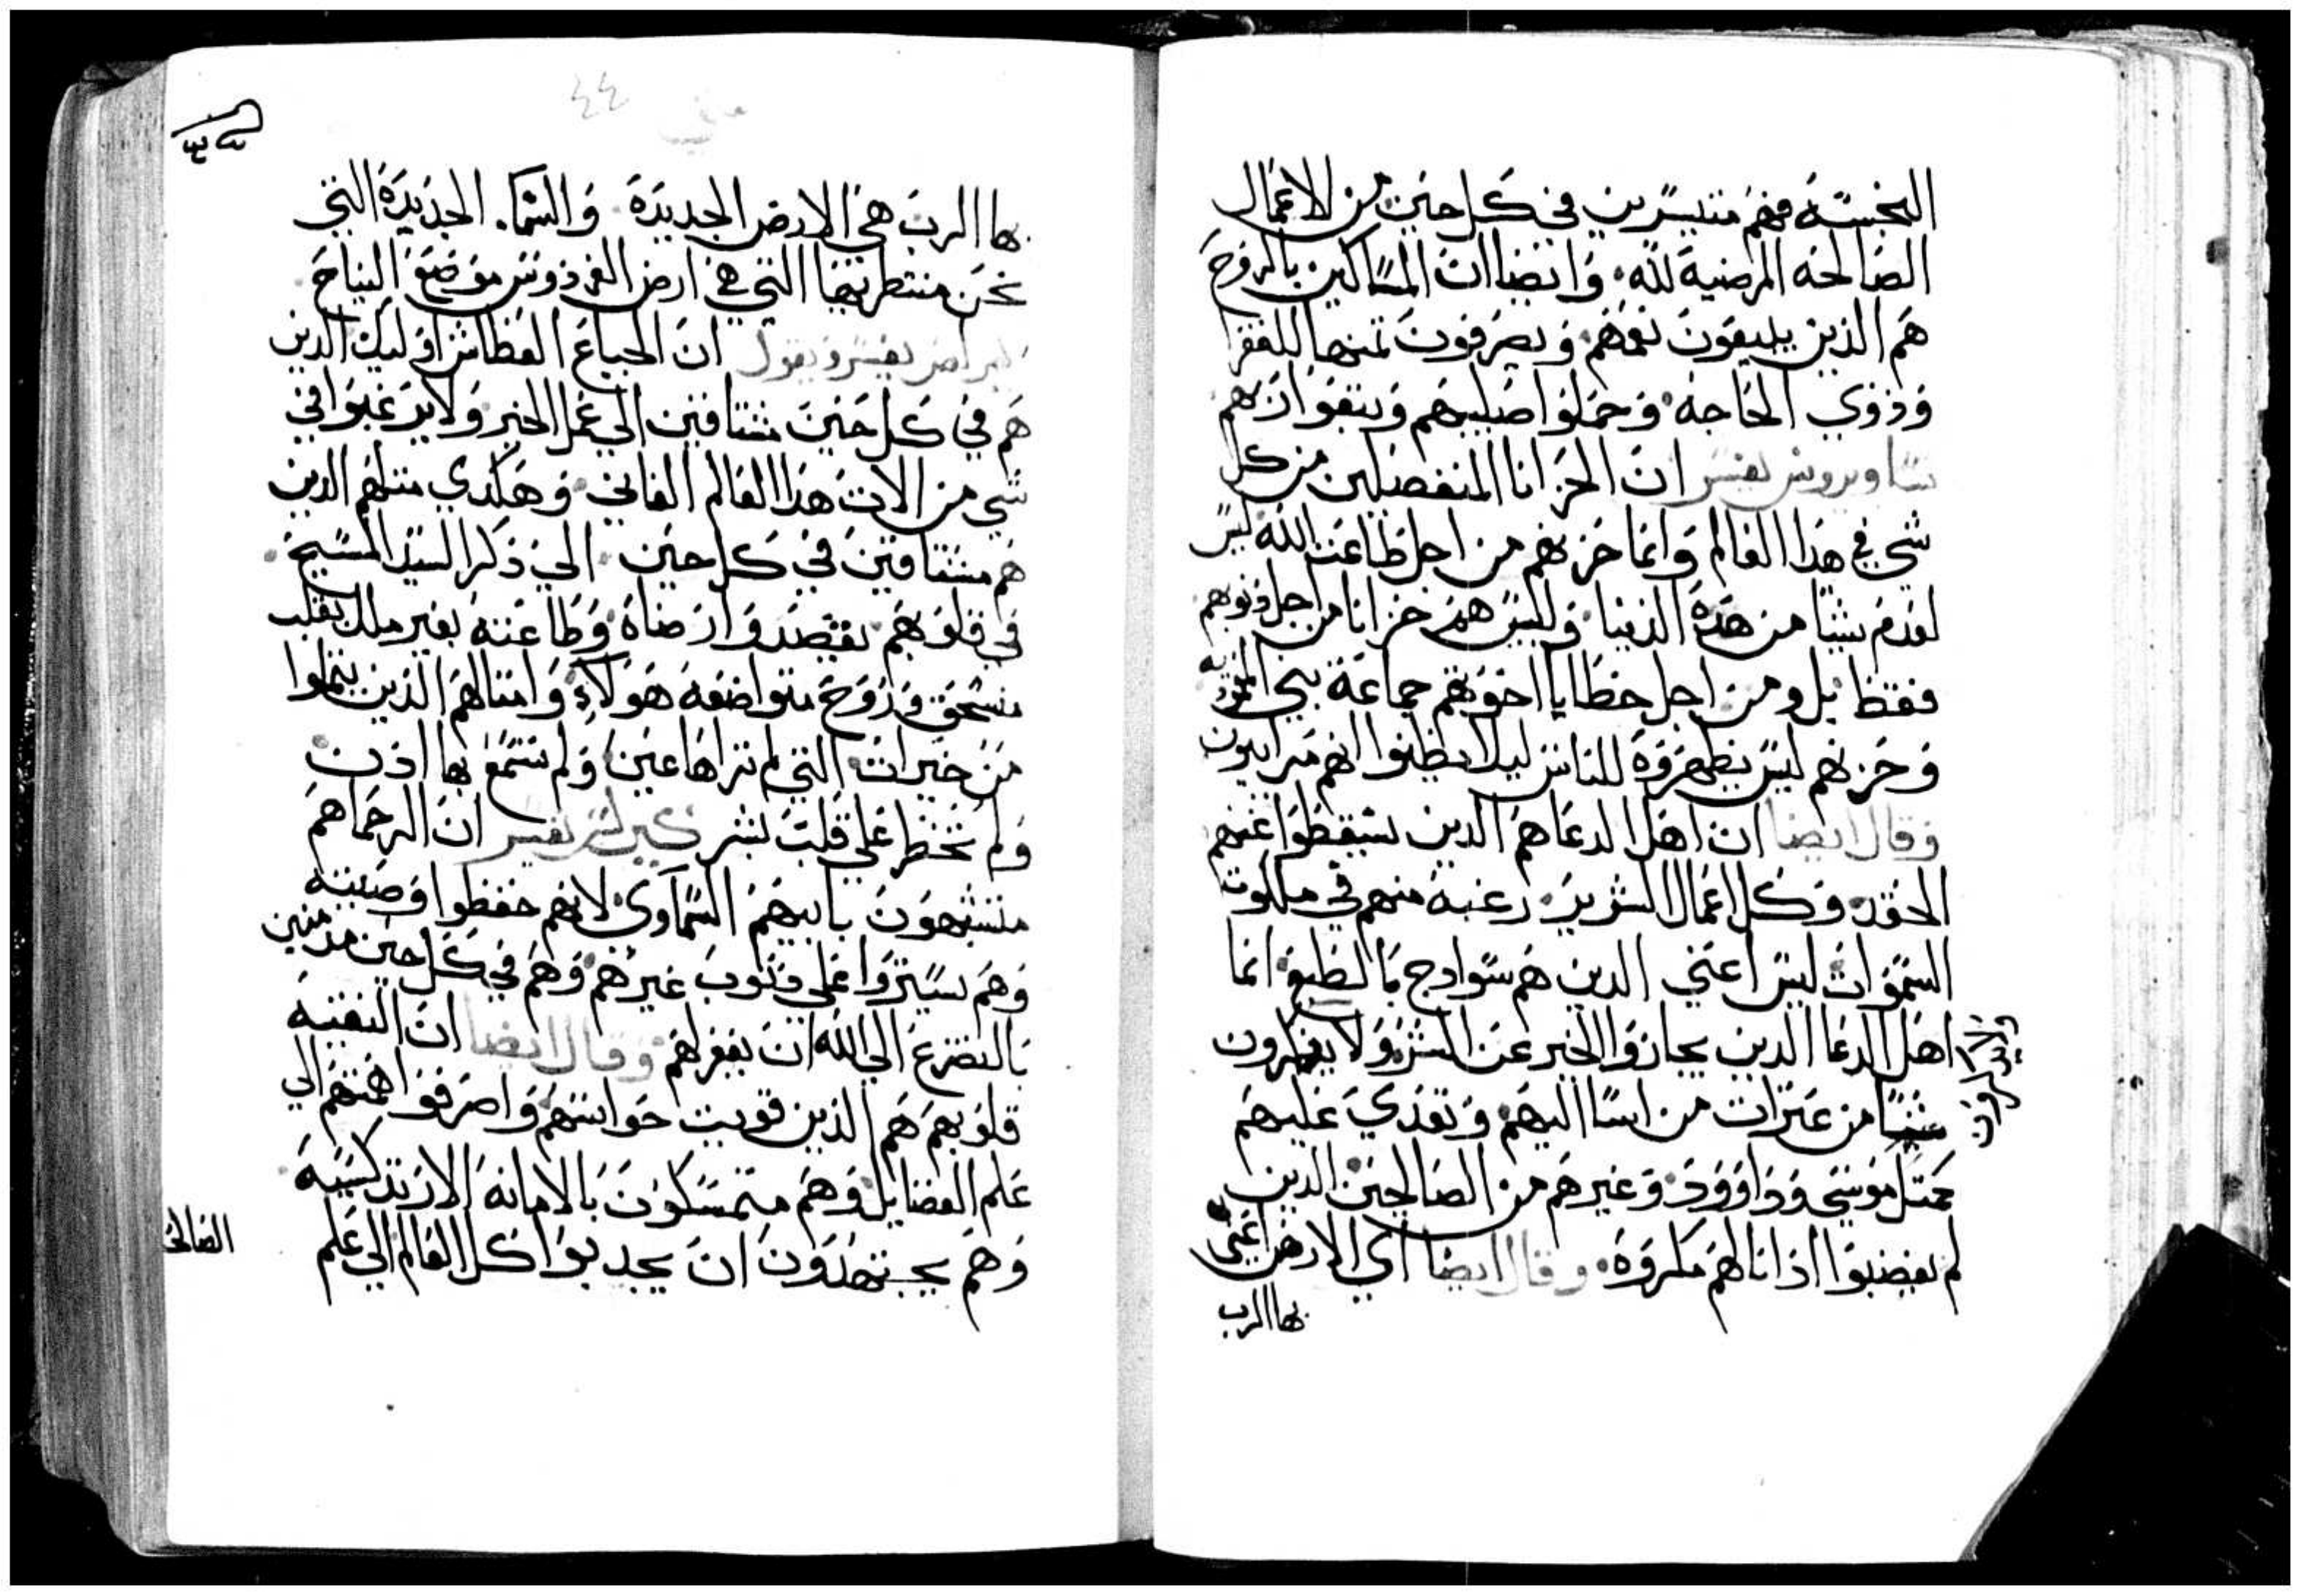 النجسة فهم متيسرين في كل حين من الاعمال
الصالحه المرضية لله وايضا ان المساكين بالروح
هم الذين يبيعون نعمهم ويصرفون تمنها للفقرا
وذوي الحاجه وحملوا صليبهم ويتبعوا ربهم
ساويروس يفسر ان الحزانا المنفصلين من كل
شي في هذا العالم وانما حزنهم من اجل طاعت الله ليس
لعدم شيا من هذه الدنيا وليس هم حزانا من اجل دنوبهم
فقط بل ومن اجل خطايا اخوتهم جماعة بني
وحزنهم ليس يظهروه للناس ليلا يظنوا انهم مرايون
وقال ايضا ان اهل الدعاهم الدين يسقطوا عنهم
الحقد وكل اعمال الشرير رغبة منهم في ملكوت
السموات ليس اعني الدين هم سوادج بالطبع انما
اهل الدعا الدين يجازوا الخير عن الشر ولا يفكرون
شيا من عترات من اسا اليهم وتعدي عليهم
كمتل موسي وداوود وغيرهم من الصالحين الدين
لم يغضبوا ادا نالهم مكروه وقال ايضا اي الارض اعني
بها الرب
متي ٤٤
بها الرب هي الارض الجديدة والسما الجديدة التي
نحن منتطرينها التي هي ارض الفردوس موضع النياح
يفسر ويقول ان الجياع العطاش اوليك الدين
هم في كل حين مشتاقين الي عمل الخير ولا يرغبوا في
شي من الات هذا العالم الفاني وهكدي متلهم الدين
هم مشتاقين في كل حين الي ذكر السيد المسيح
في قلوبهم بقصد وارضاه وطاعته بغير ملل بقلب
منسحق وروح متواضعه هولاء وامتالهم الدين يتملوا
من خيرات التي لم تراها عين ولم تسمع بها ادن
ولم تخطر علي قلب بشر كيرلس يفسر ان الرحما هم
متشبهون بابيهم السماوي لانهم حفظوا وصيته
وهم يستروا علي دنوب غيرهم وهم في كل حين مدمنين
بالتضرع الي الله ان يغفر لهم وقال ايضا ان النقية
قلوبهم هم الذين قويت حواسهم واصرفوا همتهم الي
علم الفضايل وهم متمسكون بالامانه الارتدكسية
وهم يجتهدون ان يجدبوا كل العالم الي علم
الصالح